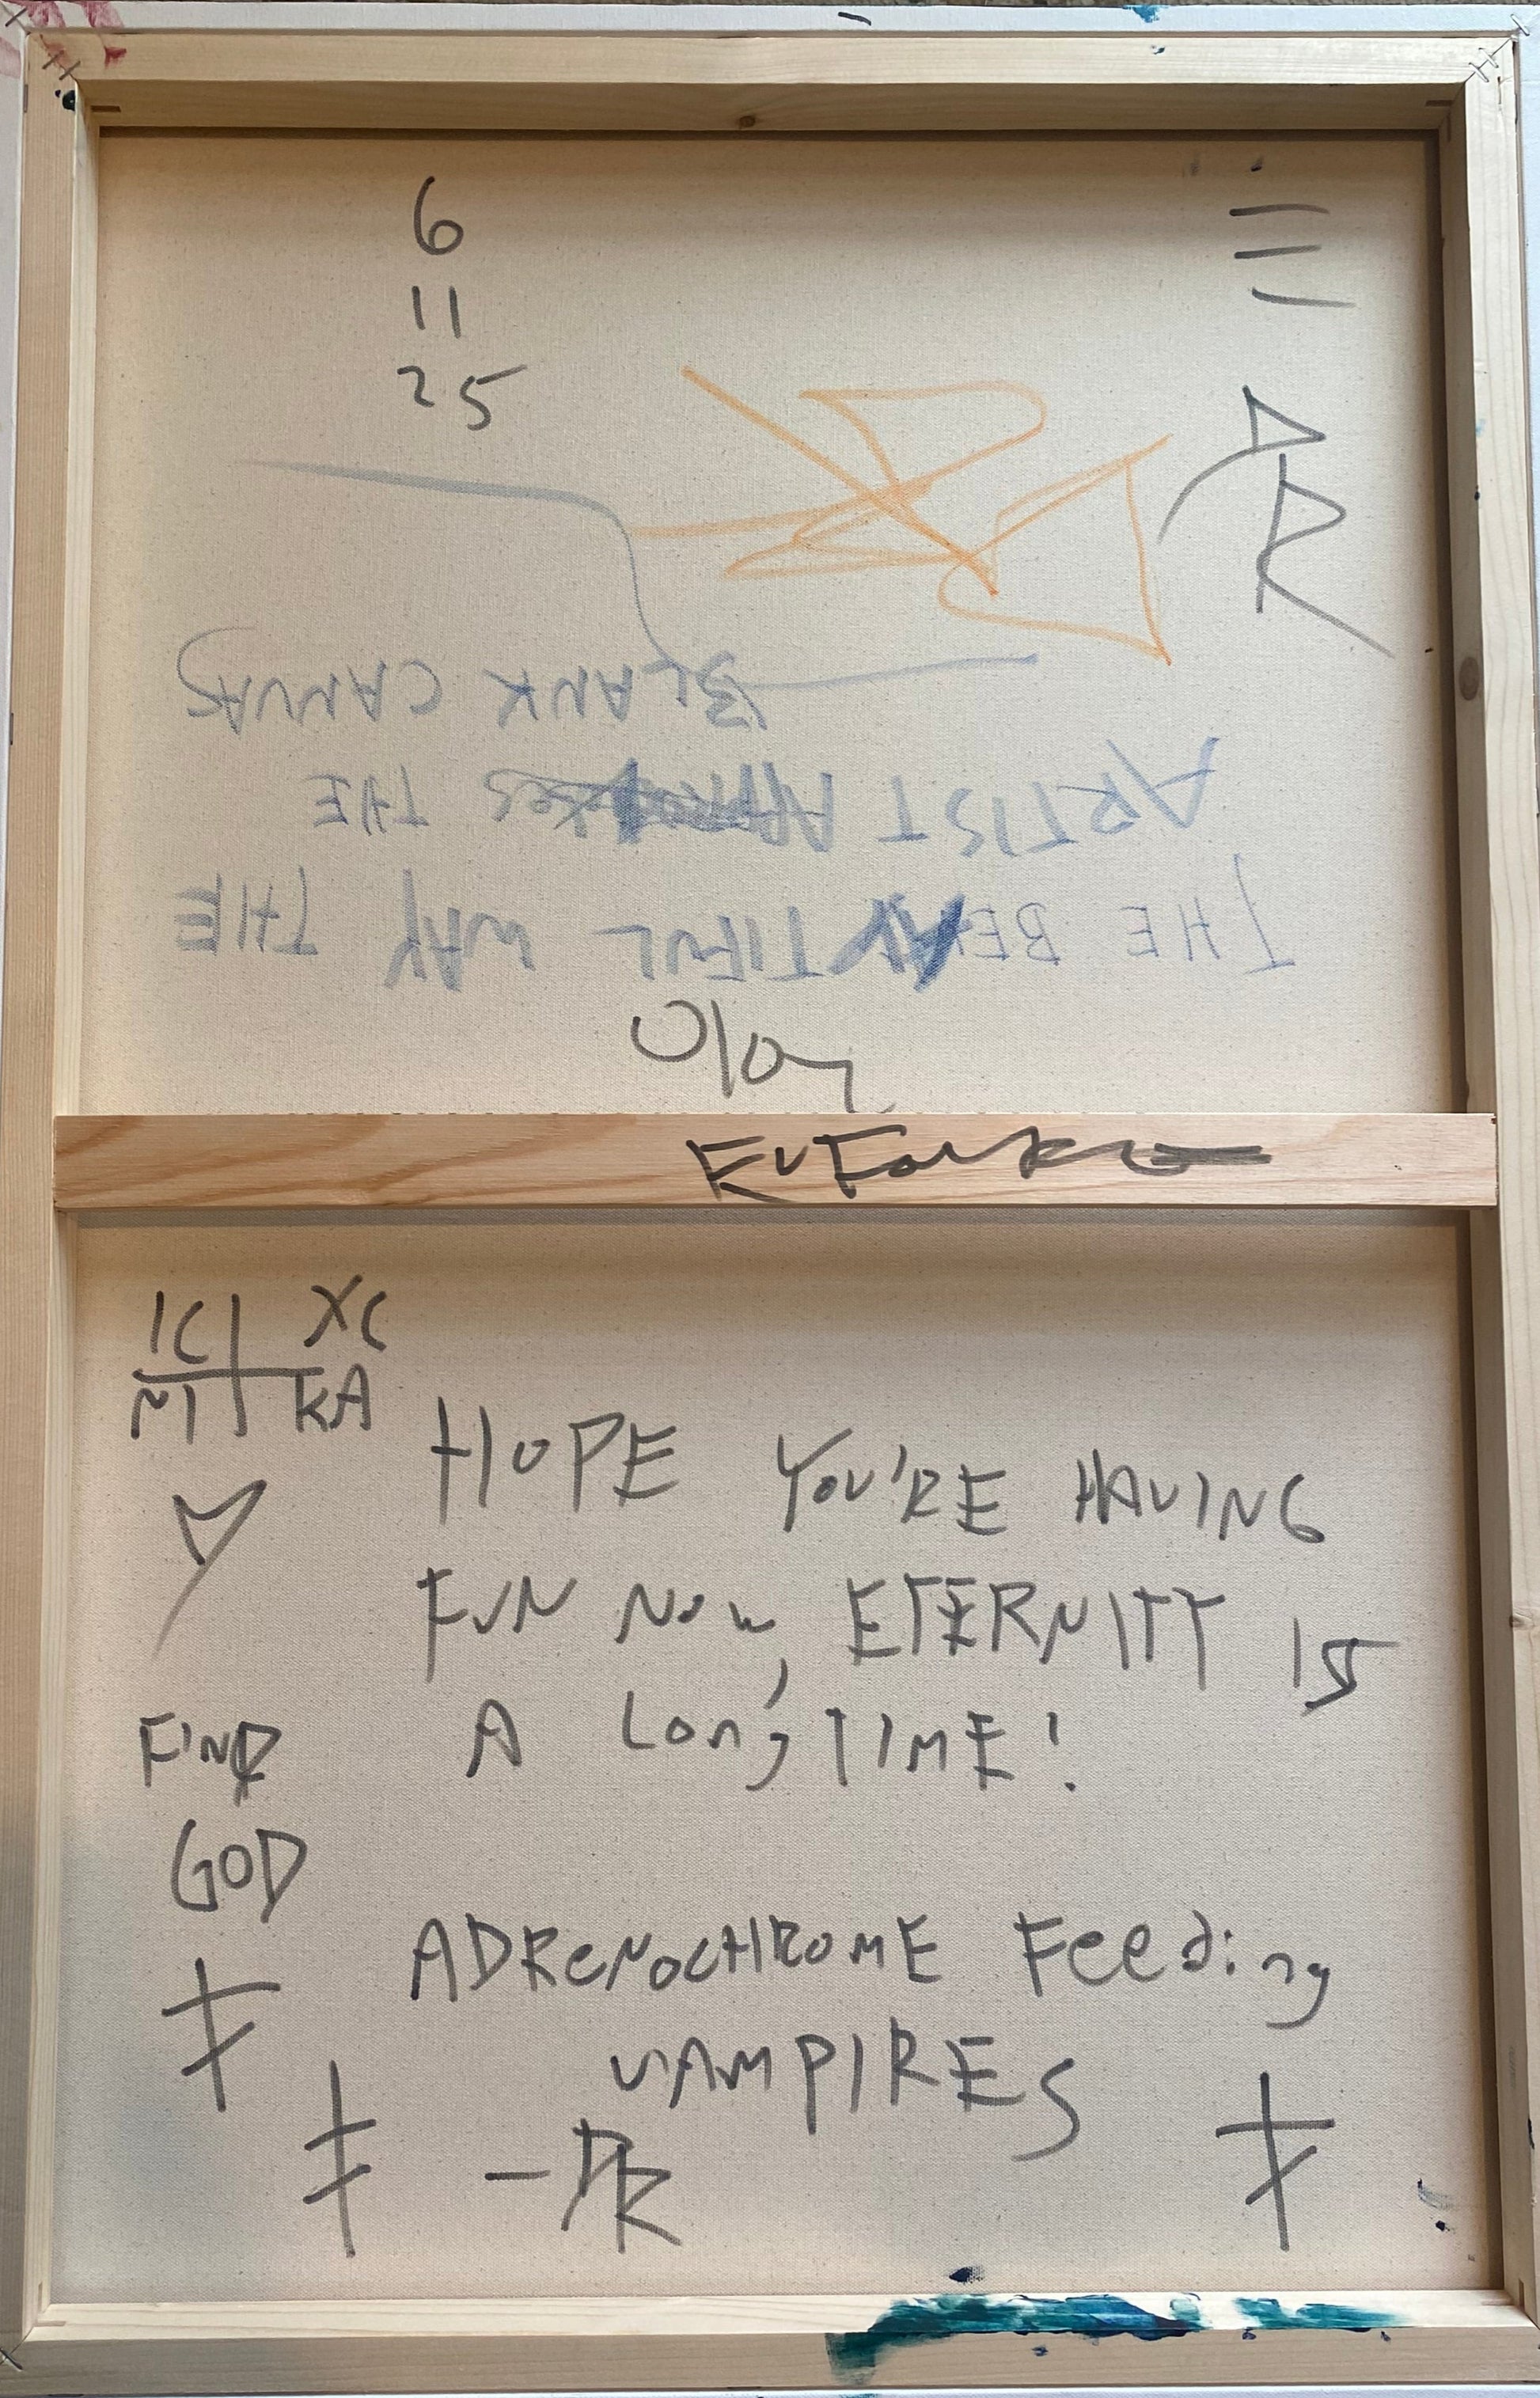 6
11
25
DR
THE BEAUTIFUL WAY THE
ARTIST THE
BLANK CANVAS
IC XC
NI KA
HOPE YOU'RE HAVING
FUN NOW, ETERNITY IS
A Long TIME!
FIND
GOD
ADReNOCHROME FeeDing
VAMPIRES
-DR